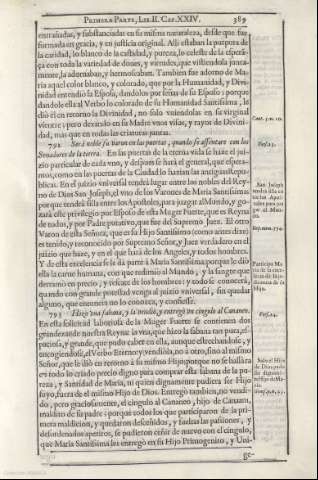 PRIMERA PARTE, LIB. II. CAP. XXIV. 389
entrañadas, y substanciadas en su misma naturaleza, desde que fue
formada en gracia, y en justicia original. Alli estaban la purpura de
la caridad, lo blanco de la castidad, y pureza, lo celeste de la espera-
ça con toda la variedad de dones, y virtudes, que vistiendola junta-
mente, la adornaban, y hermoseaban. Tambien fue adorno de Ma-
ria aquel color blanco, y colorado, que por la Humanidad, y Divi-
nidad entendió la Esposa, dandolos por señas de su Esposo; porque
dandole ella al Verbo lo colorado de su Humanidad Santissima, le
dió él en retorno la Divinidad, no solo uniendola en su virginal
vientre; pero dexando en su Madre unos visos, y rayos de Divini-
dad, mas que en todas las criaturas juntas.
792 Será noble su varon en las puertas, quando se assentare con los
Senadores de la tierra. En las puertas de la eterna vida se haze el jui-
zio particular de cada uno, y despues se hará el general, que espera-
mos; como en las puertas de la Ciudad lo hazian las antiguas Repu-
blicas. En el juizio universal tendrá lugar entre los nobles del Rey-
no de Dios San Joseph, el uno de los Varones de Maria Santissima
por que tendrá silla entre los Apostoles, para juzgar al Mundo, y go-
zará este privilegio por Esposo de esta Muger Fuerte, que es Reyna
de todos, y por Padre putativo, que fue del Supremo Juez. El otro
Varon de esta Señora, que es su Hijo Santissimo (como antes dixe)
es tenido, y reconocido por Supremo Señor, y Juez verdadero en el
juizio que haze, y en el que hará de los Angeles, y todos hombres.
Y de esta excelencia se le dá parte á Maria Santissima, porque le dió
ella la carne humana, con que redimió al Mundo, y la sangre que
derramó en precio, y rescate de los hombres: y todo se conocerá,
quando con grande potestad venga al juizio universal, sin quedar
alguno, que entonces no lo conozca, y confiesse.
793 Hizo una sabana, y la vendió, y entregó un cingulo al Cananeo.
En esta solicitud laboriosa de la Muger Fuerte se contienen dos
grandezas de nuestra Reyna: la una, que hizo la sabana tan pura, es-
paciosa, y grande, que pudo caber en ella, aunque estrechandose, y
encogiendose, el Verbo Eterno; y vendióla, no á otro, sino al mismo
Señor, que le dió en retorno á su mismo Hijo; porque no se hallara
en todo lo criado precio digno para comprar esta sabana de la pu-
reza, y Santidad de Maria, ni quien dignamente pudiera ser Hijo
suyo, fuera de el mismo Hijo de Dios. Entregó tambien, no vendi-
do, pero graciosamente, el cingulo al Cananeo, hijo de Canaam,
maldito de su padre: porque todos los que participaron de la pri-
mera maldicion, y quedaron desceñidos, y sueltas las passiones, y
desordenados apetitos, se pudieron ceñir de nuevo con el cingulo,
que Maria Santissima les entregó en su Hijo Primogenito, y Uni-
ge-
Cant. 5. v. 10.
Vers. 23.
San Joseph
tendrá silla en-
tre los Apos-
toles para juz-
gar al Mun-
do.
Participa Ma-
ria de la exce-
lencia de Juez
de su
Hijo.
Vers. 24.
Solo el Hijo
de Dios pudo
ser dignamen-
te Hijo de Ma-
ria.